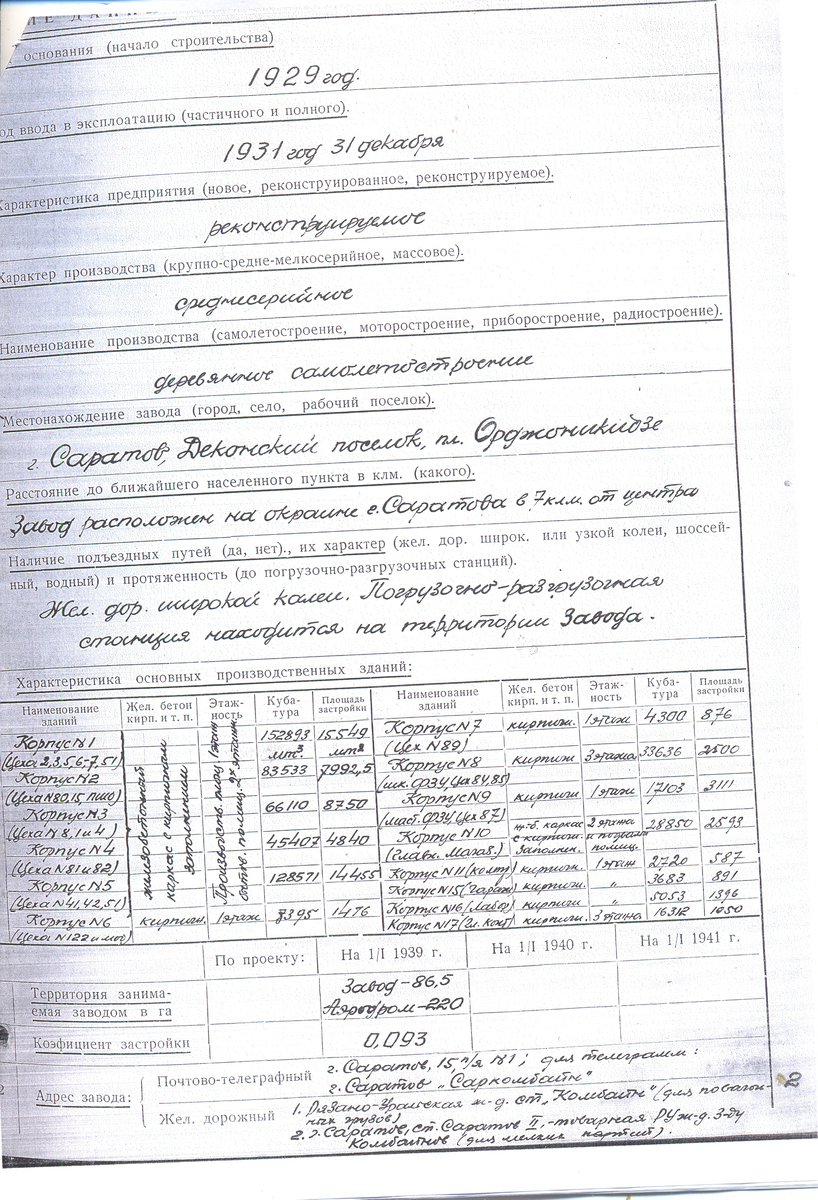 основания (начало строительства)
1929 год.
од ввода в эксплоатацию (частичного и полного).
1931 год 31 декабря
Характеристика предприятия (новое, реконструированное, реконструируемое).
реконструируемое
Характер производства (крупно-средне-мелкосерийное, массовое).
среднесерийное
Наименование производства (самолетостроение, моторостроение, приборостроение, радиостроение).
деревянное самолетостроение
Местонахождение завода (город, село, рабочий поселок).
г. Саратов, Деконский поселок, пл. Орджоникидзе
Расстояние до ближайшего населенного пункта в клм. (какого).
Завод расположен на окраине г. Саратова в 7 клм. от центра
Наличие подъездных путей (да, нет)., их характер (жел. дор. широк. или узкой колеи, шоссей-
ный, водный) и протяженность (до погрузочно-разгрузочных станций).
Жел. дор. широкой калеи. Погрузочно-разгрузочная
станция находится на территории Завода.
Характеристика основных производственных зданий:
Наименование зданий Жел. бетон кирп. и т. п. Этаж-ность Куба-тура Площадь застройки Наименование зданий Жел. бетон кирп. и т. п. Этаж-ность Куба-тура Площадь застройки
железобетонный каркас с кирпичным заполнением
Произвоств. площ. 1 этаж бытов. помещ. 2х этажн.
Корпус N1 152893 мт³ 15549 мт²
(Цеха 2,3,5,6-7,51)
Корпус N2 83533 7992,5
(Цеха N80,15,
Корпус N3 66110 8750
(Цеха N 8,1 и 4)
Корпус N4 45407 4840
(Цеха N81 и 82)
Корпус N5 128571 14455
(Цеха N41,42,51)
Корпус N6 кирпичн. 1этаж 7395 1476
(Цеха N122 и
Корпус N7 кирпичн. 1этаж 4300 876
(Цех N89)
Корпус N8 кирпичн 3этажа 33636 2500
(шк. ФЗУ, Цех 84,85)
Корпус N9 кирпичн 1этаж 17103 3111
(маст. ФЗУ, Цех 87)
Корпус N10 ж-б. каркас с кирпичн. Заполнен. 2 этажа и подвальн. помещ. 28850 2593
(Главн. Магаз.)
Корпус N11 (контр) кирпичн. 1этаж 2720 587
Корпус N15 (Гараж) кирпичн. „ 3683 891
Корпус N16 (Лабор) кирпичн „ 5053 1396
Корпус N17 (Гл. Конт) кирпичн. 3этажа 16312 1050
По проекту: На 1/I 1939 г. На 1/I 1940 г. На 1/I 1941 г.
Территория занима-
емая заводом в га
Завод-86,5
Аэродром-220
Коефициент застройки 0,093
Адрес завода:
Почтово-телеграфный г. Саратов, 15, п/я N1; для телеграмм:
г. Саратов „Саркомбайн"
Жел. дорожный 1. Рязано-Уральская ж-д. ст. „Комбайн" (для повагон-
ных грузов)
2. г. Саратов, ст. Саратов II,-товарная РУж-д. З-ду
Комбайнов (для мелких партий).
2